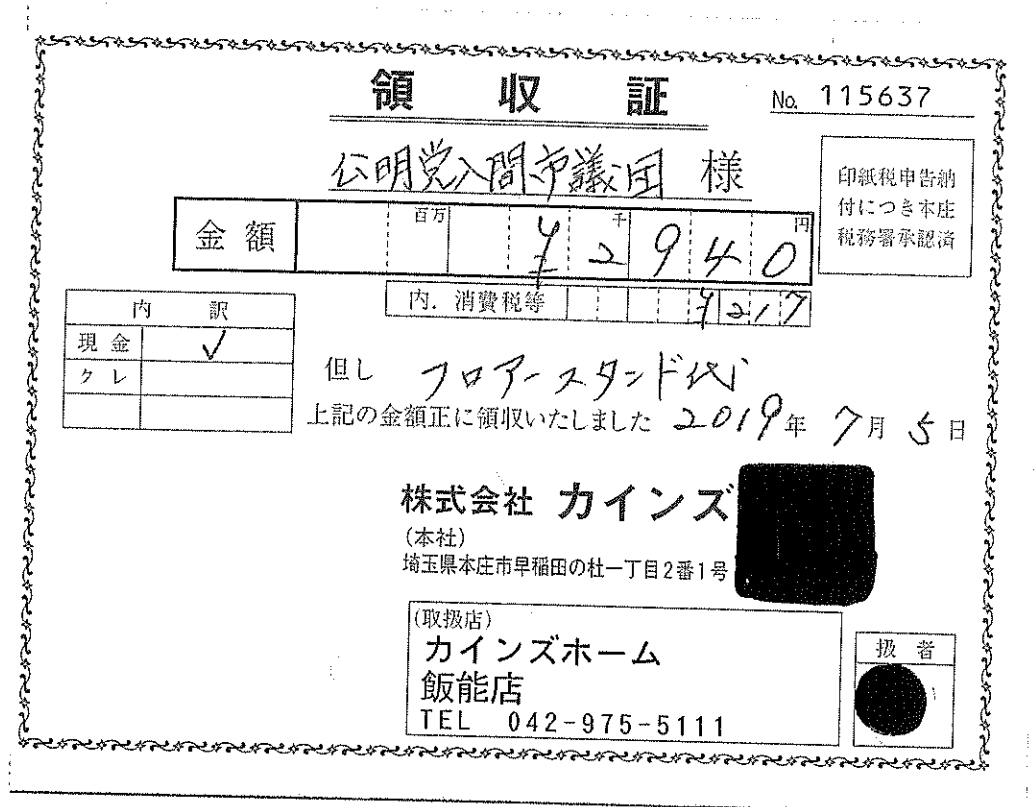 領 収 証
No. 115637
公明党入間市議団 様
印紙税申告納
付につき本庄
税務署承認済
金 額 百万 千 円 ¥2940
内. 消費税等 ¥217
内 訳
現 金 ✓
ク レ
但し フロアースタンド代
上記の金額正に領収いたしました 2019年 7月 5日
株式会社 カインズ
(本社)
埼玉県本庄市早稲田の杜一丁目2番1号
(取扱店)
カインズホーム
飯能店
TEL 042-975-5111
扱 者